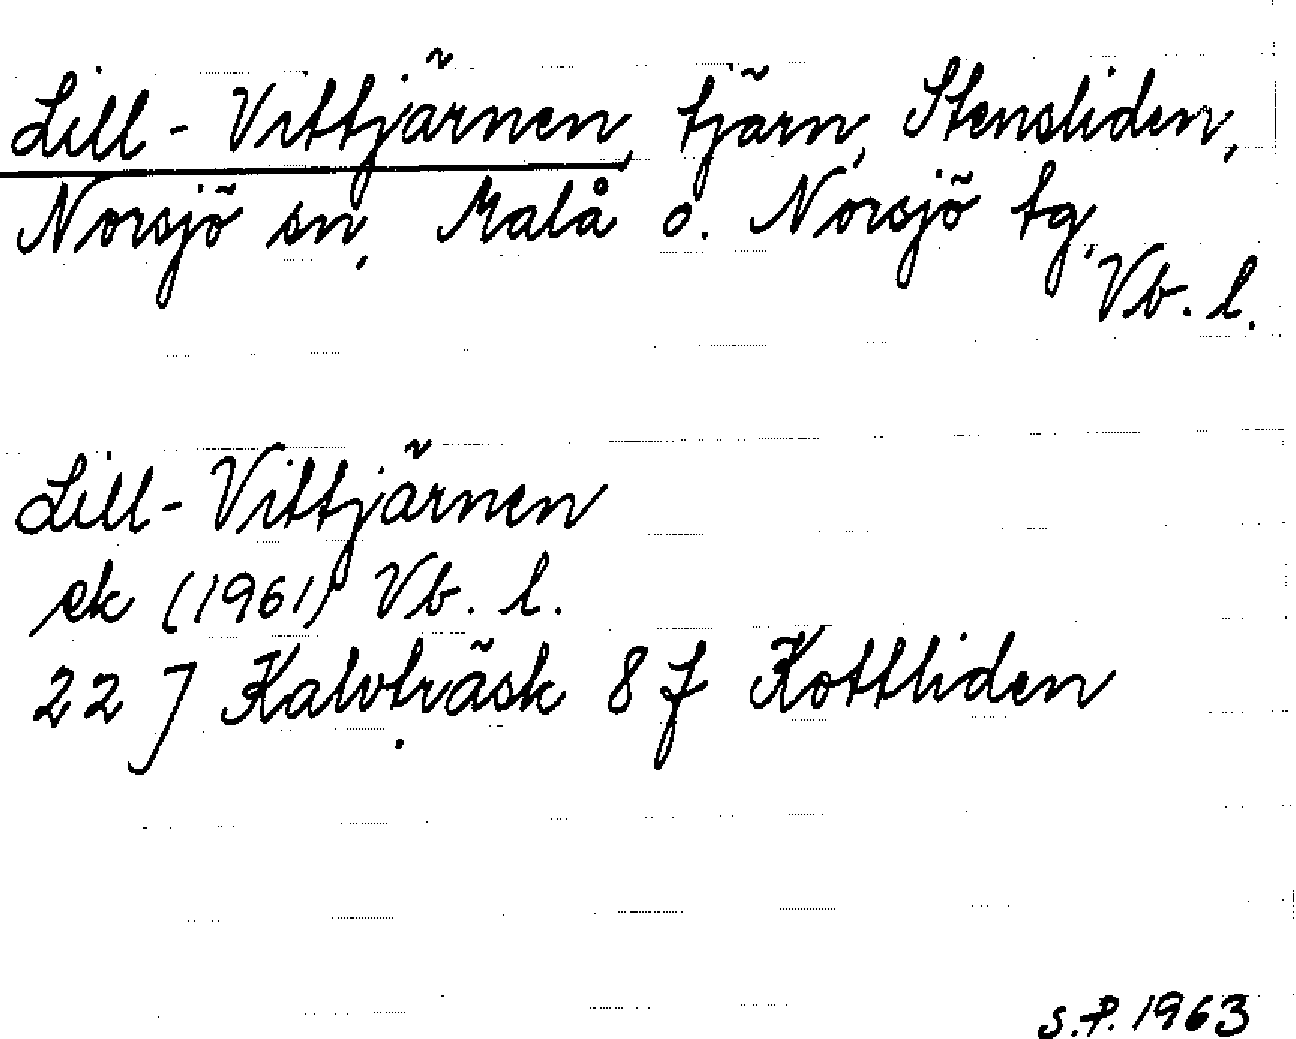 Lill-Vittjärnen, tjärn, Stensliden,
Norsjö sn, Malå o. Norsjö tg,
Vb. l.
Lill-Vittjärnen
ek (1961) Vb. l.
22 J Kalvträsk 8 f Kottliden
S.P. 1963